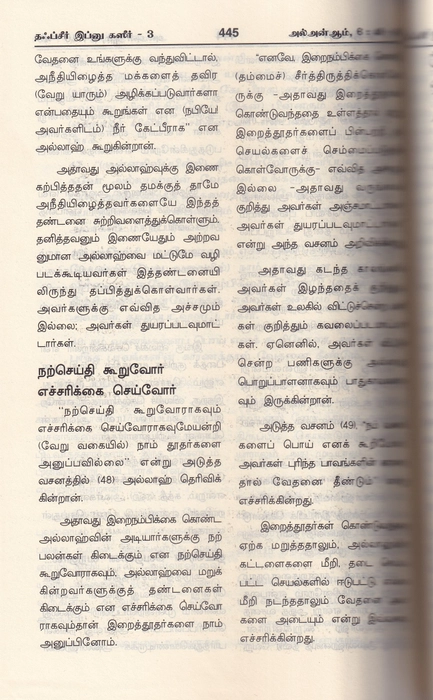 தஃப்சீர் இப்னு கஸீர் - 3 445 அல்அன்ஆம், 6
வேதனை உங்களுக்கு வந்துவிட்டால்,
அநீதியிழைத்த மக்களைத் தவிர
(வேறு யாரும்) அழிக்கப்படுவார்களா
என்பதையும் கூறுங்கள் என (நபியே!
அவர்களிடம்) நீர் கேட்பீராக" என
அல்லாஹ் கூறுகின்றான்.
அதாவது அல்லாஹ்வுக்கு இணை
கற்பித்ததன் மூலம் தமக்குத் தாமே
அநீதியிழைத்தவர்களையே இந்தத்
தண்டனை சுற்றிவளைத்துக்கொள்ளும்.
தனித்தவனும் இணையேதும் அற்றவ
னுமான அல்லாஹ்வை மட்டுமே வழி
படக்கூடியவர்கள் இத்தண்டனையி
லிருந்து தப்பித்துக்கொள்வார்கள்.
அவர்களுக்கு எவ்வித அச்சமும்
இல்லை; அவர்கள் துயரப்படவுமாட்
டார்கள்.
நற்செய்தி கூறுவோர்
எச்சரிக்கை செய்வோர்
"நற்செய்தி கூறுவோராகவும்
எச்சரிக்கை செய்வோராகவுமேயன்றி
(வேறு வகையில்) நாம் தூதர்களை
அனுப்பவில்லை" என்று அடுத்த
வசனத்தில் (48) அல்லாஹ் தெரிவிக்
கின்றான்.
அதாவது இறைநம்பிக்கை கொண்ட
அல்லாஹ்வின் அடியார்களுக்கு நற்
பலன்கள் கிடைக்கும் என நற்செய்தி
கூறுவோராகவும், அல்லாஹ்வை மறுக்
கின்றவர்களுக்குத் தண்டனைகள்
கிடைக்கும் என எச்சரிக்கை செய்வோ
ராகவும்தான் இறைத்தூதர்களை நாம்
அனுப்பினோம்.
"எனவே, இறைநம்பிக்கை
(தம்மைச்) சீர்த்திருத்திக்
ருக்கு -அதாவது
கொண்டுவந்ததை
இறைத்தூதர்களைப்
செயல்களைச்
கொள்வோருக்கு- எவ்வித
இல்லை -அதாவது
குறித்து அவர்கள்
அவர்கள்
என்று அந்த வசனம்
அதாவது கடந்த
அவர்கள் இழந்ததைக்
அவர்கள் உலகில்
கள் குறித்தும்
கள். ஏனெனில், அவர்கள்
சென்ற பணிகளுக்கு
பொறுப்பாளனாகவும்
வும் இருக்கின்றான்.
அடுத்த வசனம் (49),
களைப் பொய் எனக்
அவர்கள் புரிந்த பாவங்களின்
தால் வேதனை தீண்டும்"
எச்சரிக்கின்றது.
இறைத்தூதர்கள்
ஏற்க மறுத்ததாலும்,
கட்டளைகளை மீறி,
பட்ட செயல்களில் ஈடுபட்டு
மீறி நடந்ததாலும் வேதனை
களை அடையும் என்று
எச்சரிக்கின்றது.